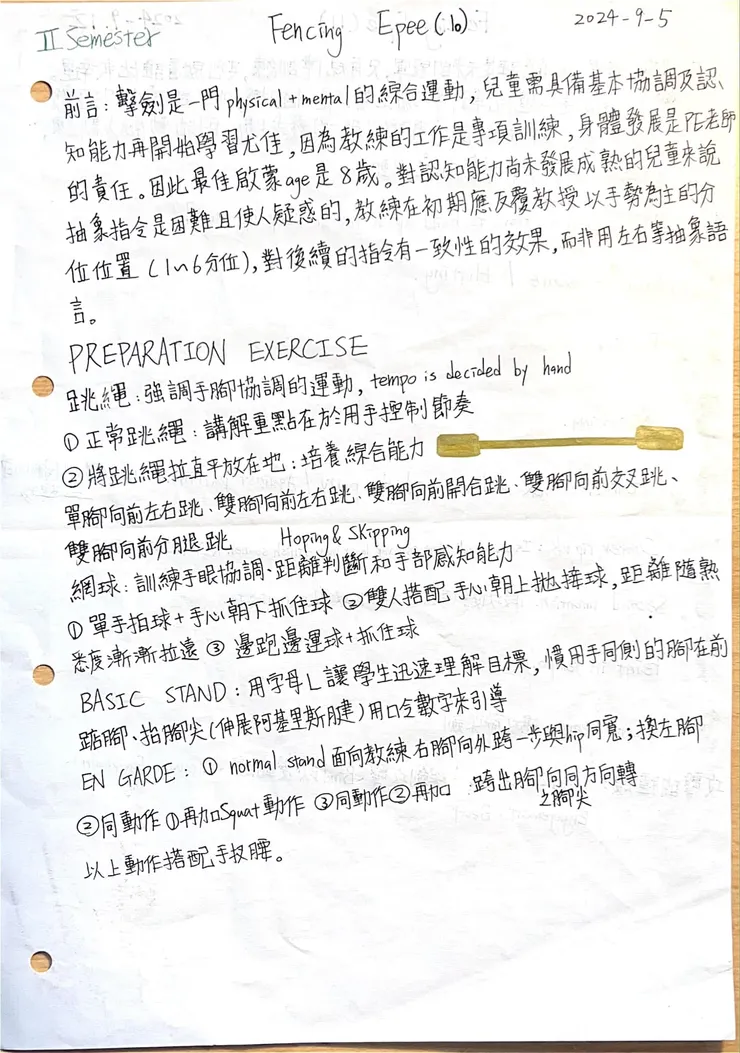 II Semester
Fencing Epee (1b)
2024-9-5
前言：擊劍是一門 physical + mental 的綜合運動，兒童需具備基本協調及認
知能力再開始學習尤佳，因為教練的工作是專項訓練，身體發展是PE老師
的責任。因此最佳啟蒙age是8歲。對認知能力尚未發展成熟的兒童來說
抽象指令是困難且使人疑惑的，教練在初期應反覆教授以手勢為主的分
位位置（1~6分位），對後續的指令有一致性的效果，而非用左右等抽象語
言。
PREPARATION EXERCISE
跳繩：強調手腳協調的運動，tempo is decided by hand
① 正常跳繩：講解重點在於用手控制節奏
② 將跳繩拉直平放在地：培養綜合能力
單腳向前左右跳、雙腳向前左右跳、雙腳向前開合跳、雙腳向前交叉跳、
雙腳向前分腿跳 Hoping & Skipping
網球：訓練手眼協調、距離判斷和手部感知能力
① 單手拍球+手心朝下抓住球 ② 雙人搭配手心朝上拋接球，距離隨熟
悉度漸漸拉遠 ③ 邊跑邊運球+抓住球
BASIC STAND：用字母L讓學生迅速理解目標，慣用手同側的腳在前
踮腳、抬腳尖(伸展阿基里斯腱)用口令數字來引導
EN GARDE：① normal stand 面向教練右腳向外跨一步與hip同寬；換左腳
②同動作①再加Squat動作 ③同動作②再加 跨出腳向同方向轉
之腳尖
以上動作搭配手扠腰。